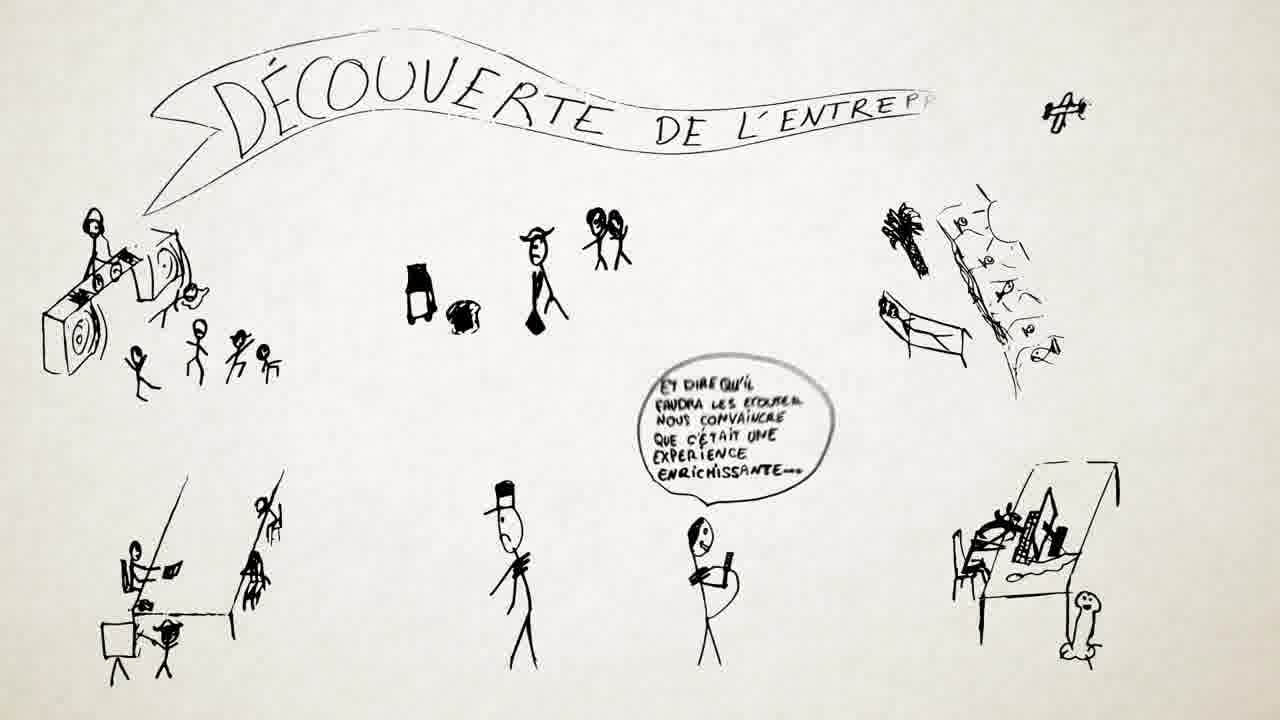 DÉCOUVERTE DE L'ENTREPR
ET DIRE QU'IL
FAUDRA LES ECOUTER
NOUS CONVAINCRE
QUE C'ÉTAIT UNE
EXPERIENCE
ENRICHISSANTE...